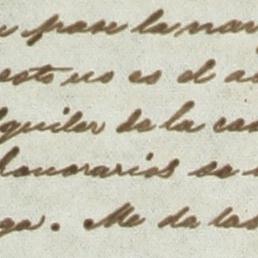 pase la nar
esto no es el a
lquiler de la cas
honorarios se
ga. Me da las